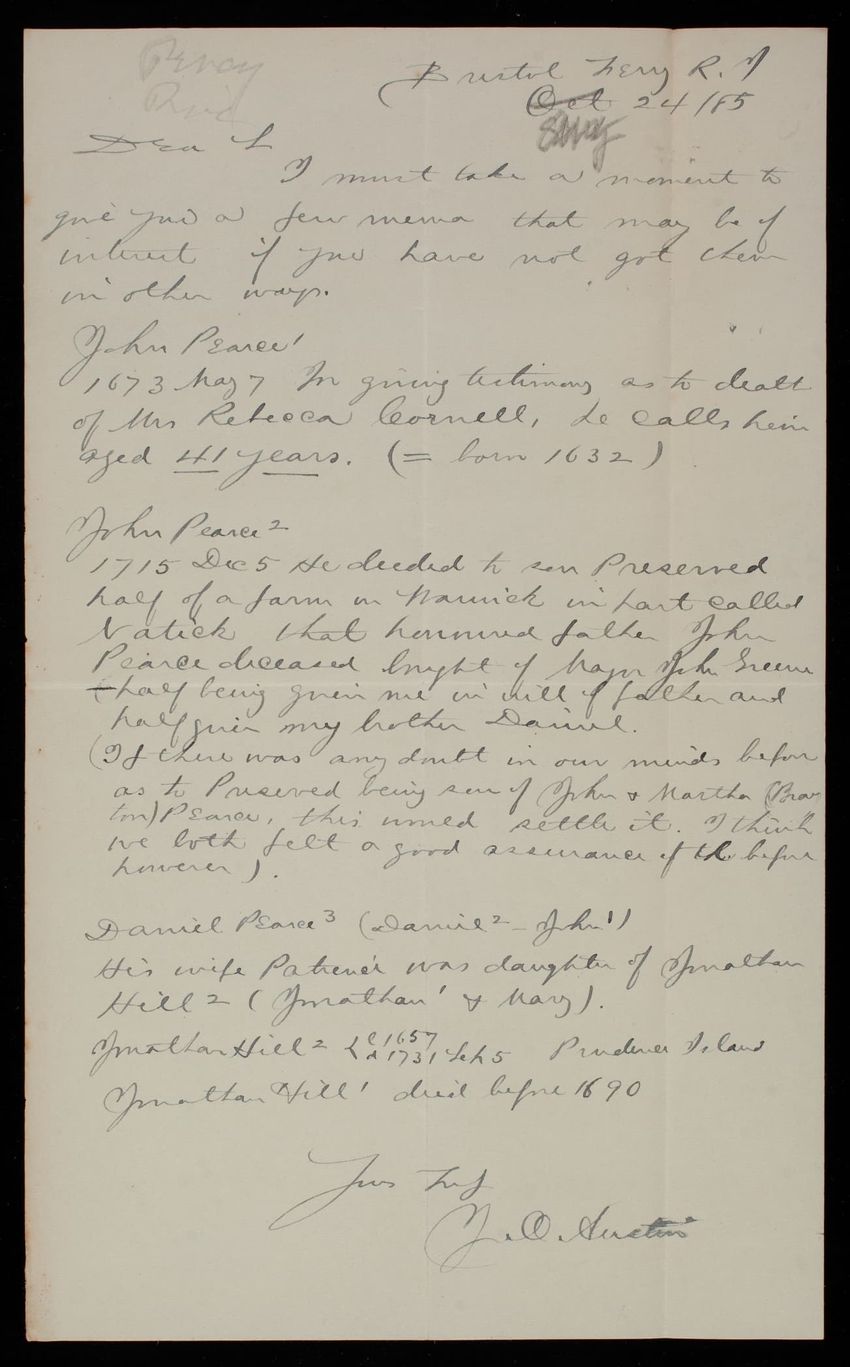 Bristol Ferry R. I
Oct 24/85
Dear S
I must take a moment to
give you a few memo that may be of
interest if you have not got them
in other ways.
John Pearce¹
1673 May 7 In giving testimony as to death
of Mrs Rebecca Cornell, he calls him
aged 41 years. (= born 1632)
John Pearce²
1715 Dec 5 He deeded to son Preserved
half of a farm in Warwick in part called
Natick that honoured father John
Pearce deceased bought of Major John Greene
half being given me in will of father and
half given my brother Daniel.
(If there was any doubt in our minds before
as to Preserved being son of John & Martha (Bray
ton) Pearce, this would settle it. I think
we both felt a good assurance of it before
however).
Daniel Pearce³ (Daniel² - John¹)
His wife Patience was daughter of Jonathan
Hill² (Jonathan¹ & Mary).
Jonathan Hill² { b 1657
d 1731 Feb 5 Prudence Island
Jonathan Hill¹ died before 1690
Yours Truly
J. O. Austin